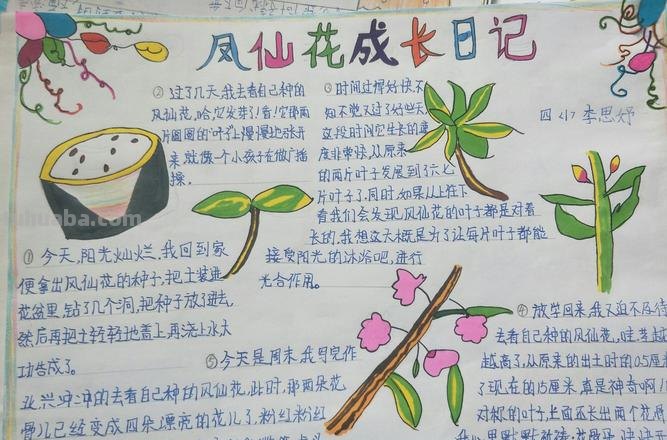 凤仙花成长日记
四(1) 李思妤
① 今天,阳光灿烂,我回到家
便拿出凤仙花的种子,把土装进
花盆里,钻了几个洞,把种子放了进去,
然后再把土轻轻地盖上,再浇上水大
功告成了。
② 过了几天,我去看自己种的
凤仙花,哈,它发芽了!看!它那两
片圆圆的叶子慢慢地张开
来,就像一个小孩子在做广播
操。
③ 时间过得好快,不
知不觉又过了好些天,
这段时间它生长的速
度非常快,从原来
的两片叶子发展到了六七
片叶子了,同时,如果从上往下
看我们会发现,凤仙花的叶子都是对着
长的,我想这大概是为了让每片叶子都能
接受阳光的沐浴吧,进行
光合作用。
④ 放学回来,我又迫不及待
去看自己种的凤仙花,哇
越高了,从原来的出土时的0.5厘
了现在的15厘米,真是神奇啊!
对称的叶子上面还长出两个花
⑤ 今天是周末,我写完作
业,兴冲冲的去看自己种的凤仙花,此时,那两朵花
骨儿已经变成四朵漂亮的花儿了,粉红粉红
tuhuaba.com